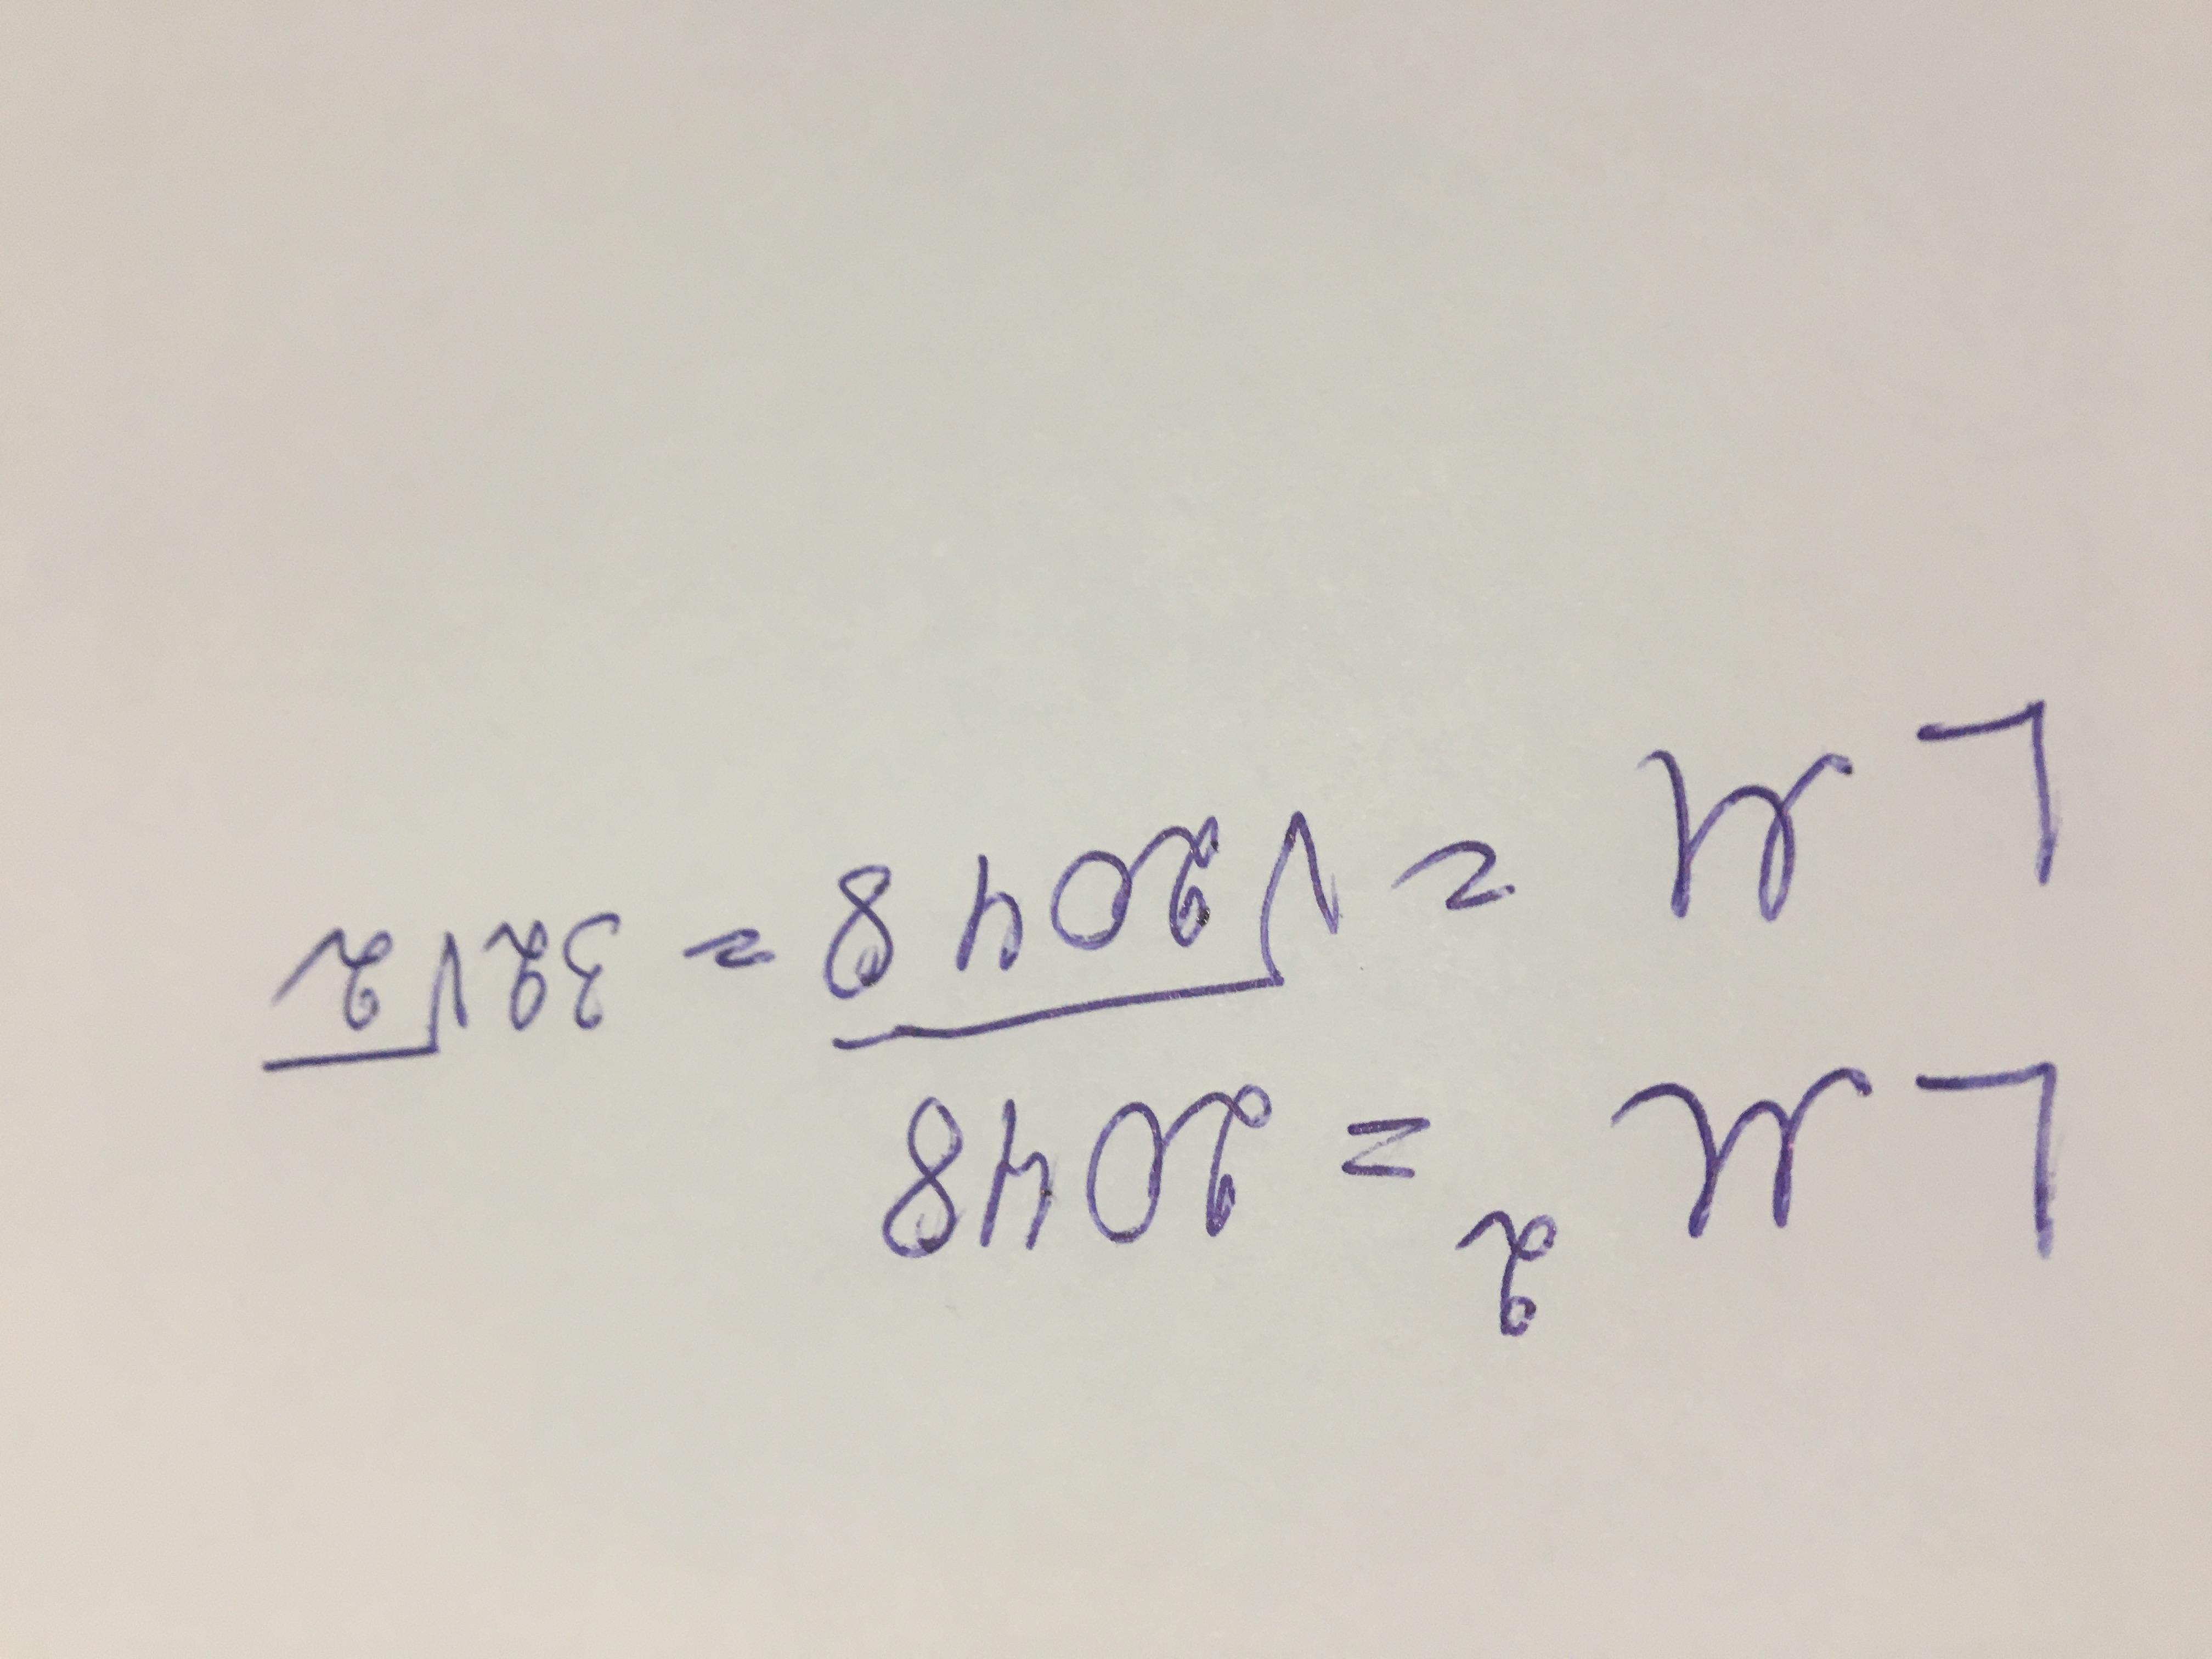 LM² = 2048
LM = √2048 = 32√2